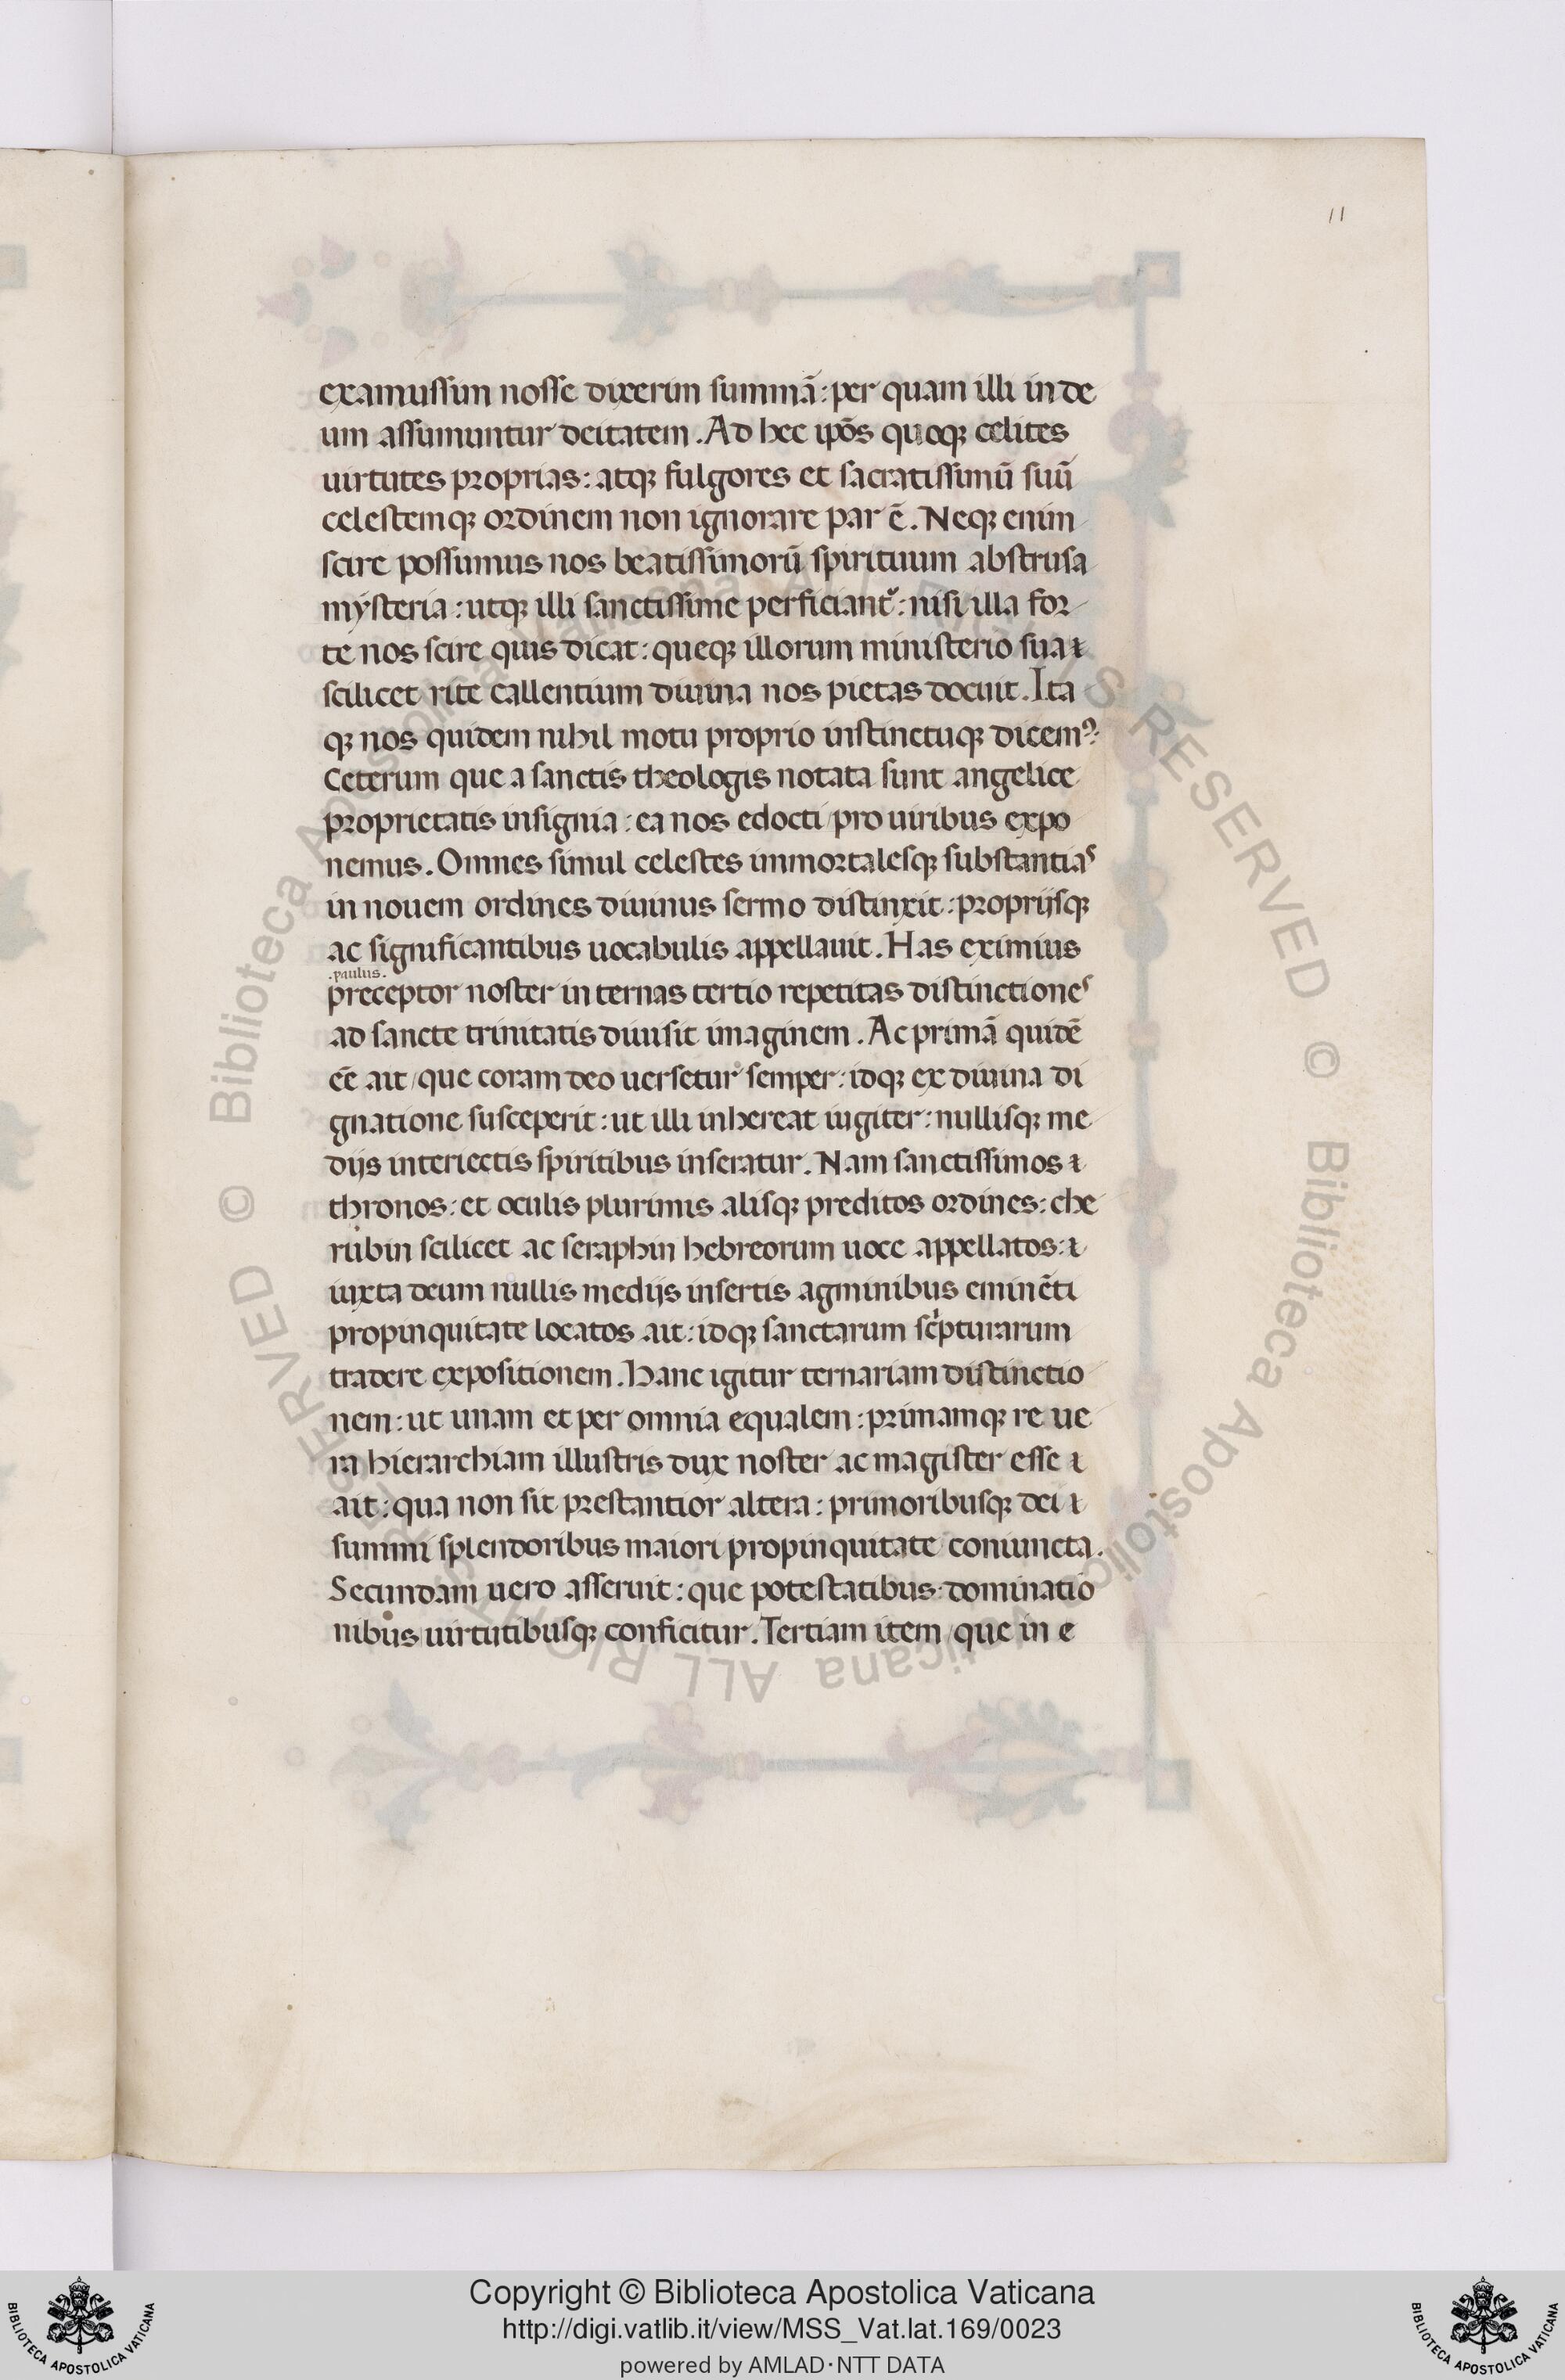 11
examussim nosse dixerim summā: per quam illi in de
um assumuntur deitatem. Ad hec ip̄os quoqꝫ celites
uirtutes proprias: atqꝫ fulgores et sacratissimū suū
celestemqꝫ ordinem non ignorare par ē. Neqꝫ enim
scire possumus nos beatissimorū spirituum abstrusa
mysteria: utqꝫ illi sanctissime perficiant᷑: nisi illa for
te nos scire quis dicat: queqꝫ illorum ministerio sua
scilicet rite callentium diuina nos pietas docuit. Ita
qꝫ nos quidem nihil motu proprio instinctuqꝫ dicemꝰ:
Ceterum que a sanctis theologis notata sunt angelice
proprietatis insignia: ea nos edocti/ pro uiribus expo
nemus. Omnes simul celestes immortalesqꝫ substantias
in nouem ordines diuinus sermo distinxit: proprijsqꝫ
ac significantibus uocabulis appellauit. Has eximius
.paulus.
preceptor noster in ternas tertio repetitas distinctiones
ad sancte trinitatis diuisit imaginem. Ac primā quidē
eē ait/ que coram deo uersetur semper: idqꝫ ex diuina di
gnatione susceperit: ut illi inhereat iugiter: nullisqꝫ me
dijs interiectis spiritibus inseratur. Nam sanctissimos
thronos: et oculis plurimis alisqꝫ preditos ordines: che
rubin scilicet ac seraphin hebreorum uoce appellatos:
iuxta deum nullis medijs insertis agminibus eminēti
propinquitate locatos ait: idqꝫ sanctarum scͥpturarum
tradere expositionem. Hanc igitur ternariam distinctio
nem: ut unam et per omnia equalem: primamqꝫ re ue
ra hierarchiam illustris dux noster ac magister esse
ait: qua non sit prestantior altera: primoribusqꝫ dei
summi splendoribus maiori propinquitate coniuncta.
Secundam uero asseruit: que potestatibus: dominatio
nibus uirtutibusqꝫ conficitur. Tertiam item/ que in e
© Biblioteca Apostolica Vaticana ALL RIGHTS RESERVED © Biblioteca Apostolica Vaticana ALL RIGHTS RESERVED
Copyright © Biblioteca Apostolica Vaticana
http://digi.vatlib.it/view/MSS_Vat.lat.169/0023
powered by AMLAD·NTT DATA
BIBLIOTECA APOSTOLICA VATICANA
BIBLIOTECA APOSTOLICA VATICANA